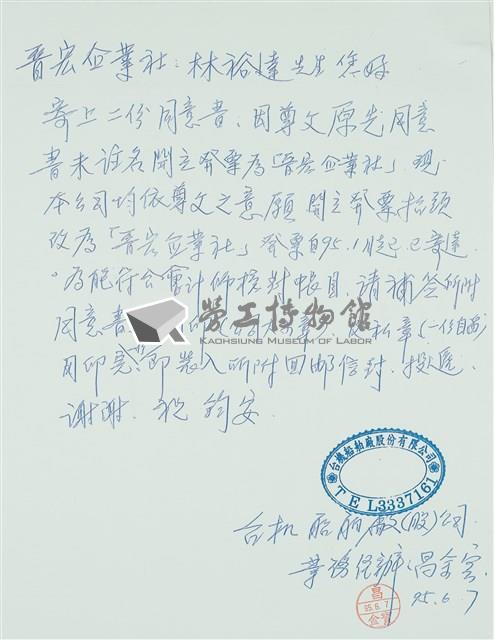 晋宏企業社：林裕達先生您好
寄上二份同意書、因尊父原先同意
書未註名開立發票為「晋宏企業社」現
本公司均依尊父之意願開立發票抬頭
改為「晋宏企業社」發票自95.1月起已
為能符合會計師核對帳目、請補簽所附
同意書 私章(一份自
用印完 即裝入所附回郵信封、投遞
謝謝、祝 鈞安
勞工博物館
KAOHSIUNG MUSEUM OF LABOR
台機船舶廠股份有限公司
TEL3337161
台机船舶廠(股)公司
業務經辦：
昌
95.6.7
95.6.7